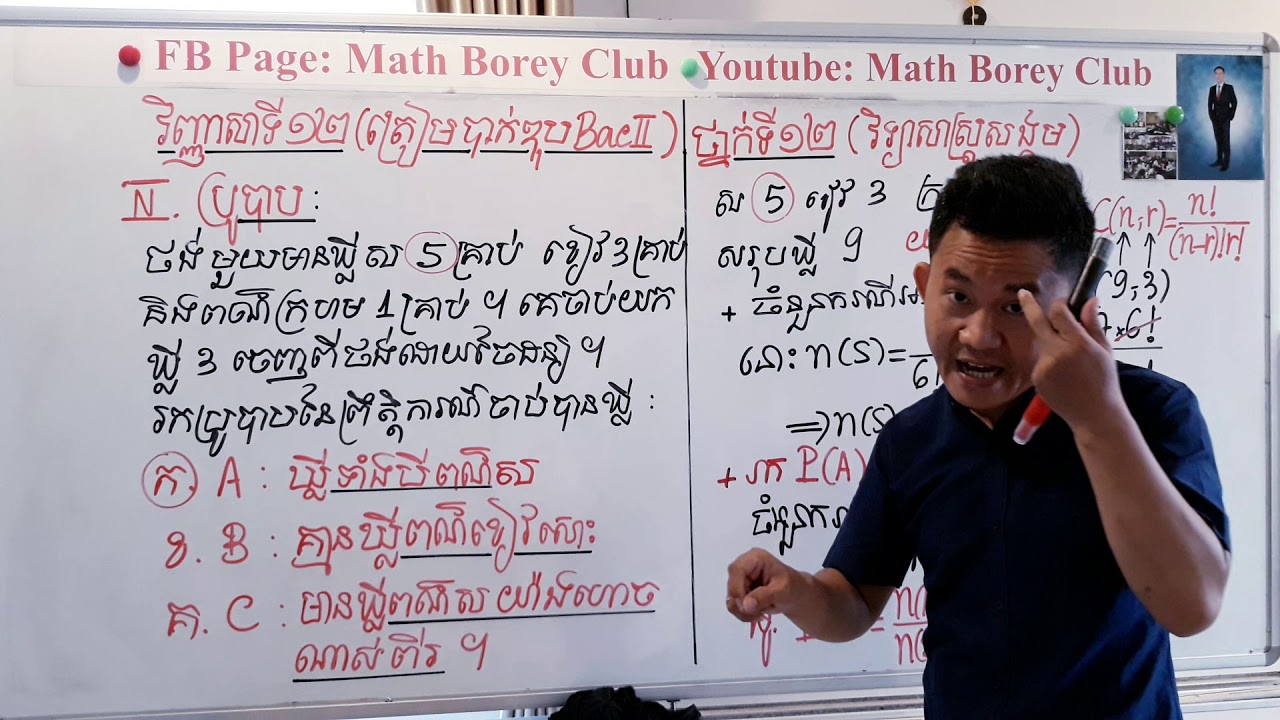 FB Page: Math Borey Club Youtube: Math Borey Club
វិញ្ញាសាទី១២ (ត្រៀមបាក់ឌុប BacII)
IV. ប្រូបាប :
ថង់មួយមានឃ្លីស 5 គ្រាប់ ខៀវ 3 គ្រាប់
និងពណ៌ក្រហម 1 គ្រាប់ ។ គេចាប់យក
ឃ្លី 3 ចេញពីថង់ដោយចៃដន្យ ។
រកប្រូបាបនៃព្រឹត្តិការណ៍ចាប់បានឃ្លី :
ក. A : ឃ្លីទាំងបីពណ៌ស
ខ. B : គ្មានឃ្លីពណ៌ខៀវសោះ
គ. C : មានឃ្លីពណ៌សយ៉ាងហោច
ណាស់ពីរ ។
ថ្នាក់ទី១២ (វិទ្យាសាស្ត្រសង្គម)
ស 5 ខៀវ 3
សរុបឃ្លី 9
C(n,r)=n!/(n-r)!r!
+ ចំនួនករណី
9,3)
នោះ n(S)=
6!
=> n(S)
+ រក P(A)
ចំនួនករ